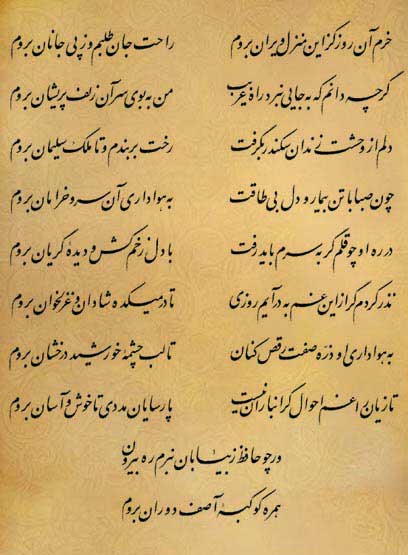 خرم آن روز کز این منزل ویران بروم راحت جان طلبم وز پی جانان بروم
گرچه دانم که به جایی نبرد راه غریب من به بوی سر آن زلف پریشان بروم
دلم از وحشت زندان سکندر بگرفت رخت بربندم و تا ملک سلیمان بروم
چون صبا با تن بیمار و دل بی طاقت به هواداری آن سرو خرامان بروم
در ره او چو قلم گر به سرم باید رفت با دل زخم کش و دیدهٔ گریان بروم
نذر کردم گر از این غم به درآیم روزی تا در میکده شادان و غزلخوان بروم
به هواداری او ذره صفت رقص کنان تا لب چشمهٔ خورشید درخشان بروم
تازیان را غم احوال گرانباران نیست پارسایان مددی تا خوش و آسان بروم
ور چو حافظ ز بیابان نبرم ره بیرون
همره کوکبهٔ آصف دوران بروم